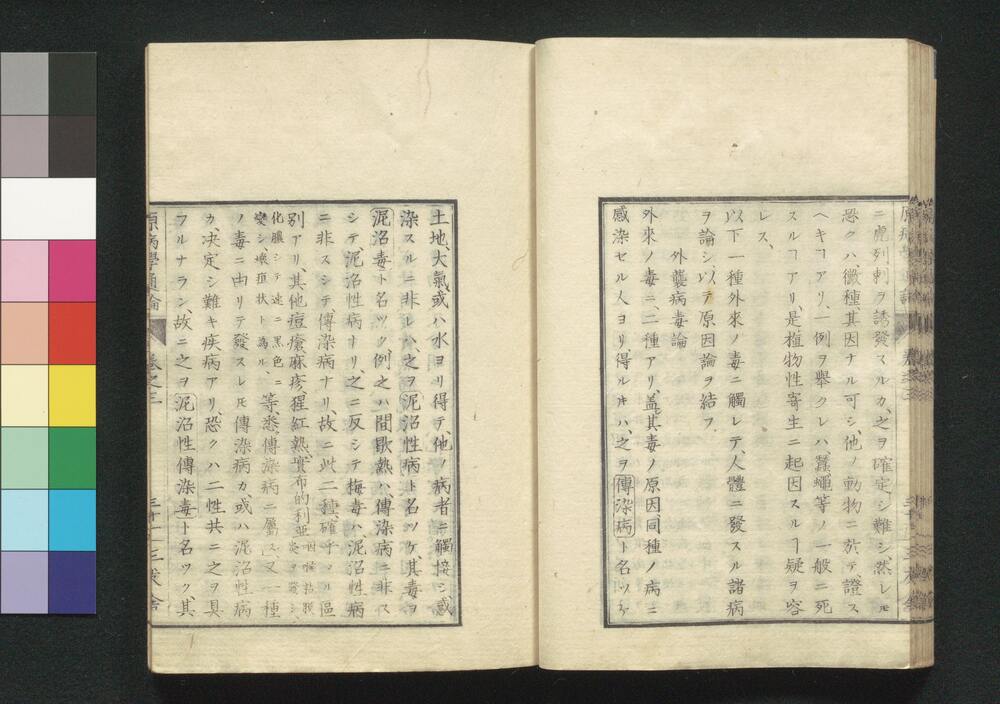 ニ虎列剌ヲ誘發スルカ、之ヲ確定シ難シ、然レ𪜈
恐クハ、黴種、其因ナル可シ、他ノ動物ニ於テ、證ス
ヘキヿアリ、一例ヲ舉クレハ、蠶蠅等ノ一般ニ死
スルヿアリ、是植物性寄生ニ起因スルヿ疑ヲ容
レス、
以下一種外來ノ毒ニ觸レテ、人體ニ發スル諸病
ヲ論シ、以テ原因論ヲ結フ
外襲病毒論
外來ノ毒ニ、二種アリ、蓋其毒ノ原因同種ノ病ニ
感染セル人ヨリ得ルキハ、之ヲ傳染病ト名ツケ
土地、大氣或ハ水ヨリ得テ、他ノ病者ニ觸接シ感
染スルニ非レハ、之ヲ泥沼性病ト名ツケ、其毒ヲ
泥沼毒ト名ツク、例之ハ間歇熱ハ、傳染病ニ非ス
シテ、泥沼性病ナリ、之ニ反シテ梅毒ハ、泥沼性病
ニ非スシテ、傳染病ナリ、故ニ此二種、確乎タル區
別アリ、其他痘瘡、麻疹、猩紅熱、實布的利亞咽喉粘膜炎ヲ發シ
化膿シテ速ニ黑色ニ變シ、壞疽狀ト為ル等、悉傳染病ニ屬ス、又一種
ノ毒ニ由リテ發スレ𪜈傳染病カ、或ハ泥沼性病
カ、决定シ難キ疾病アリ、恐クハ二性共ニ之ヲ具
フルナラン、故ニ之ヲ泥沼性傳染毒ト名ツク、其
原病學通論 卷之三